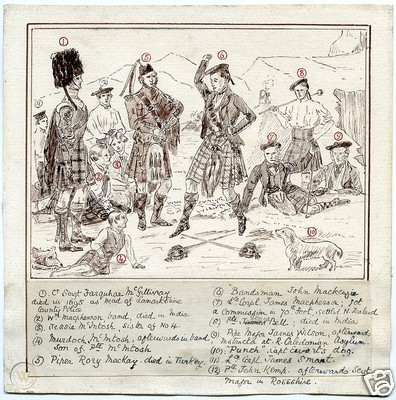 ① C. Sergt Farquhar McGillivray
died in 1865 as Head of Lanarkshire
County Police
② Wm Macpherson band, died in India
③ Jessie McIntosh, sister of No 4.
④ Murdoch McIntosh, afterwards in band
Son of Pte McIntosh
⑤ Piper Rory Mackay, died in Turkey.
⑥ Bandsman John Mackenzie
⑦ Ln Corpl. James Macpherson; got
a commission in 70 Foot, settled N. Zealand
⑧ Pte Bell; died in India
⑨ Pipe Majr James Wilson, afterwards
Instructr at R. Caledonian Asylum.
⑩ "Punch", Capt. dog.
⑪ L. Corpl. James Smart.
⑫ Pte John Kemp. afterwards Sergt
Major in Rossshire.